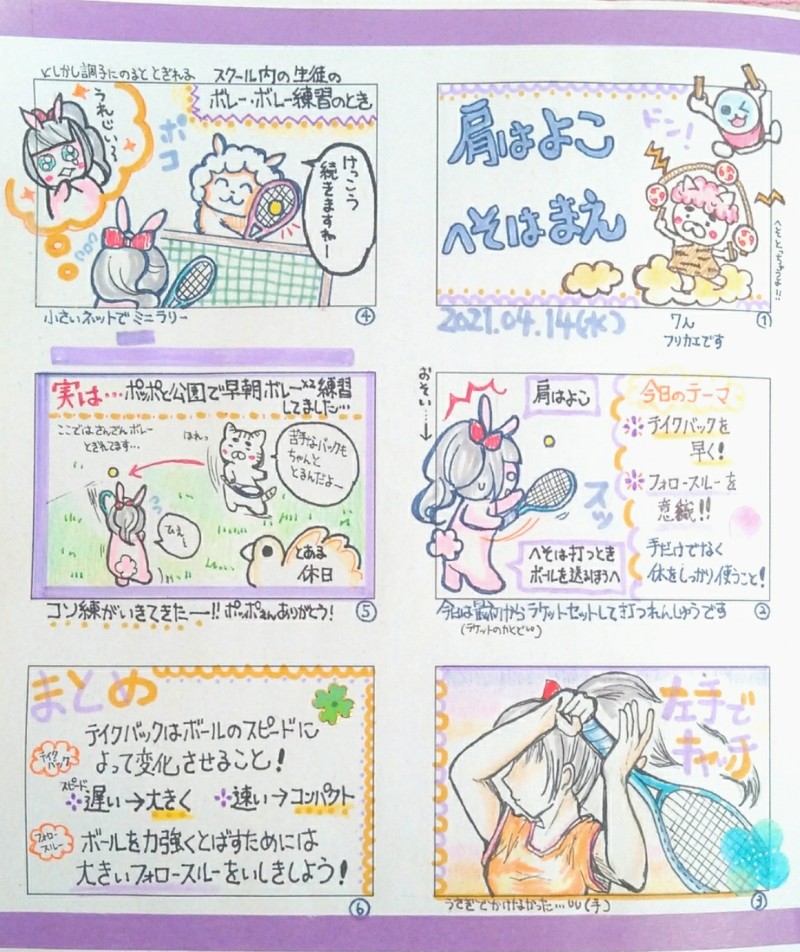 肩はよこ
へそはまえ
ドン!
へそとっちゃうよ!!
2021.04.14(水)
7ん
フリカエです
①
おそい…
肩はよこ
スッ
へそは打つとき
ボールを送るほうへ
今日のテーマ
テイクバックを
早く!
フォロースルーを
意識!!
手だけでなく
体をしっかり使うこと!
②
今日は最初からラケットセットして打つれんしゅうです
左手で
キャッチ
うさぎでかけなかった…(手)
③
しかし調子にのるととぎれる
スクール内の生徒の
ボレー・ボレー練習のとき
うれしい〜
ポコ
けっこう
続きますねー
小さいネットでミニラリー
④
実は…ポッポと公園で早朝ボレー練習
してました…
ここではさんざんボレー
とぎれてます…
ほれっ
苦手なバックも
ちゃんと
とるんだよー
ひぇ〜
とある
休日
コソ練がいきてきたー!!ポッポさんありがとう!
⑤
まとめ
テイクバック
テイクバックはボールのスピードに
よって変化させること!
スピード
遅い→大きく 速い→コンパクト
フォロースルー
ボールを力強くとばすためには
大きいフォロースルーをいしきしよう!
⑥